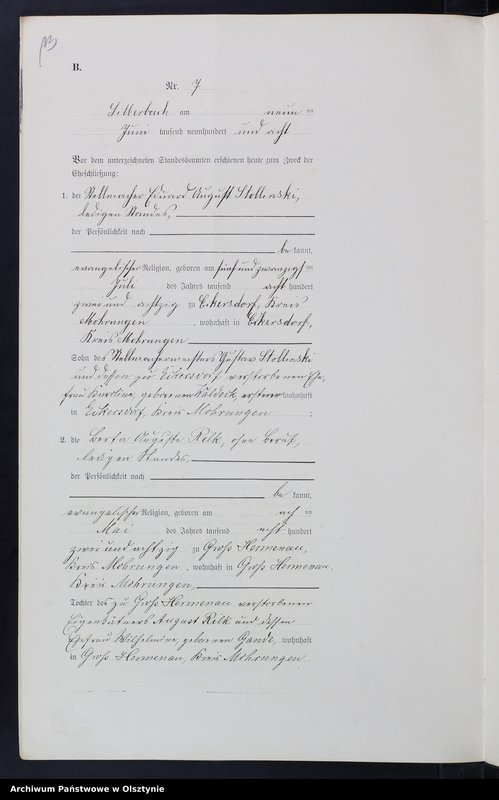 B.
Nr. 7
Silberbach am neun ten
Juni tausend neunhundert und acht
Vor dem unterzeichneten Standesbeamten erschienen heute zum Zweck der
Eheschließung:
1. der Stellmacher Eduard August Stollinski,
ledigen Standes,
der Persönlichkeit nach
be kannt,
evangelischer Religion, geboren am fünfundzwanzigs ten
Juli des Jahres tausend acht hundert
zweiundachtzig zu Eckersdorf, Kreis
Mohrungen, wohnhaft in Eckersdorf,
Kreis Mohrungen
Sohn des Stellmachermeisters Gustav Stollinski
und dessen zu Eckersdorf verstorbenen Ehe-
frau Karoline, geborenen Kaldeik, ersterer wohnhaft
in Eckersdorf, Kreis Mohrungen ;
2. die Berta Auguste Rilk, ohne Beruf,
ledigen Standes,
der Persönlichkeit nach
be kannt,
evangelischer Religion, geboren am ach ten
Mai des Jahres tausend acht hundert
zwei und achtzig zu Groß Hermenau,
Kreis Mohrungen, wohnhaft in Groß Hermenau,
Kreis Mohrungen,
Tochter des zu Groß Hermenau verstorbenen
Eigenkätners August Rilk und dessen
Ehefrau Wilhelmine, geborenen Gande, wohnhaft
in Groß Hermenau, Kreis Mohrungen.
Archiwum Państwowe w Olsztynie